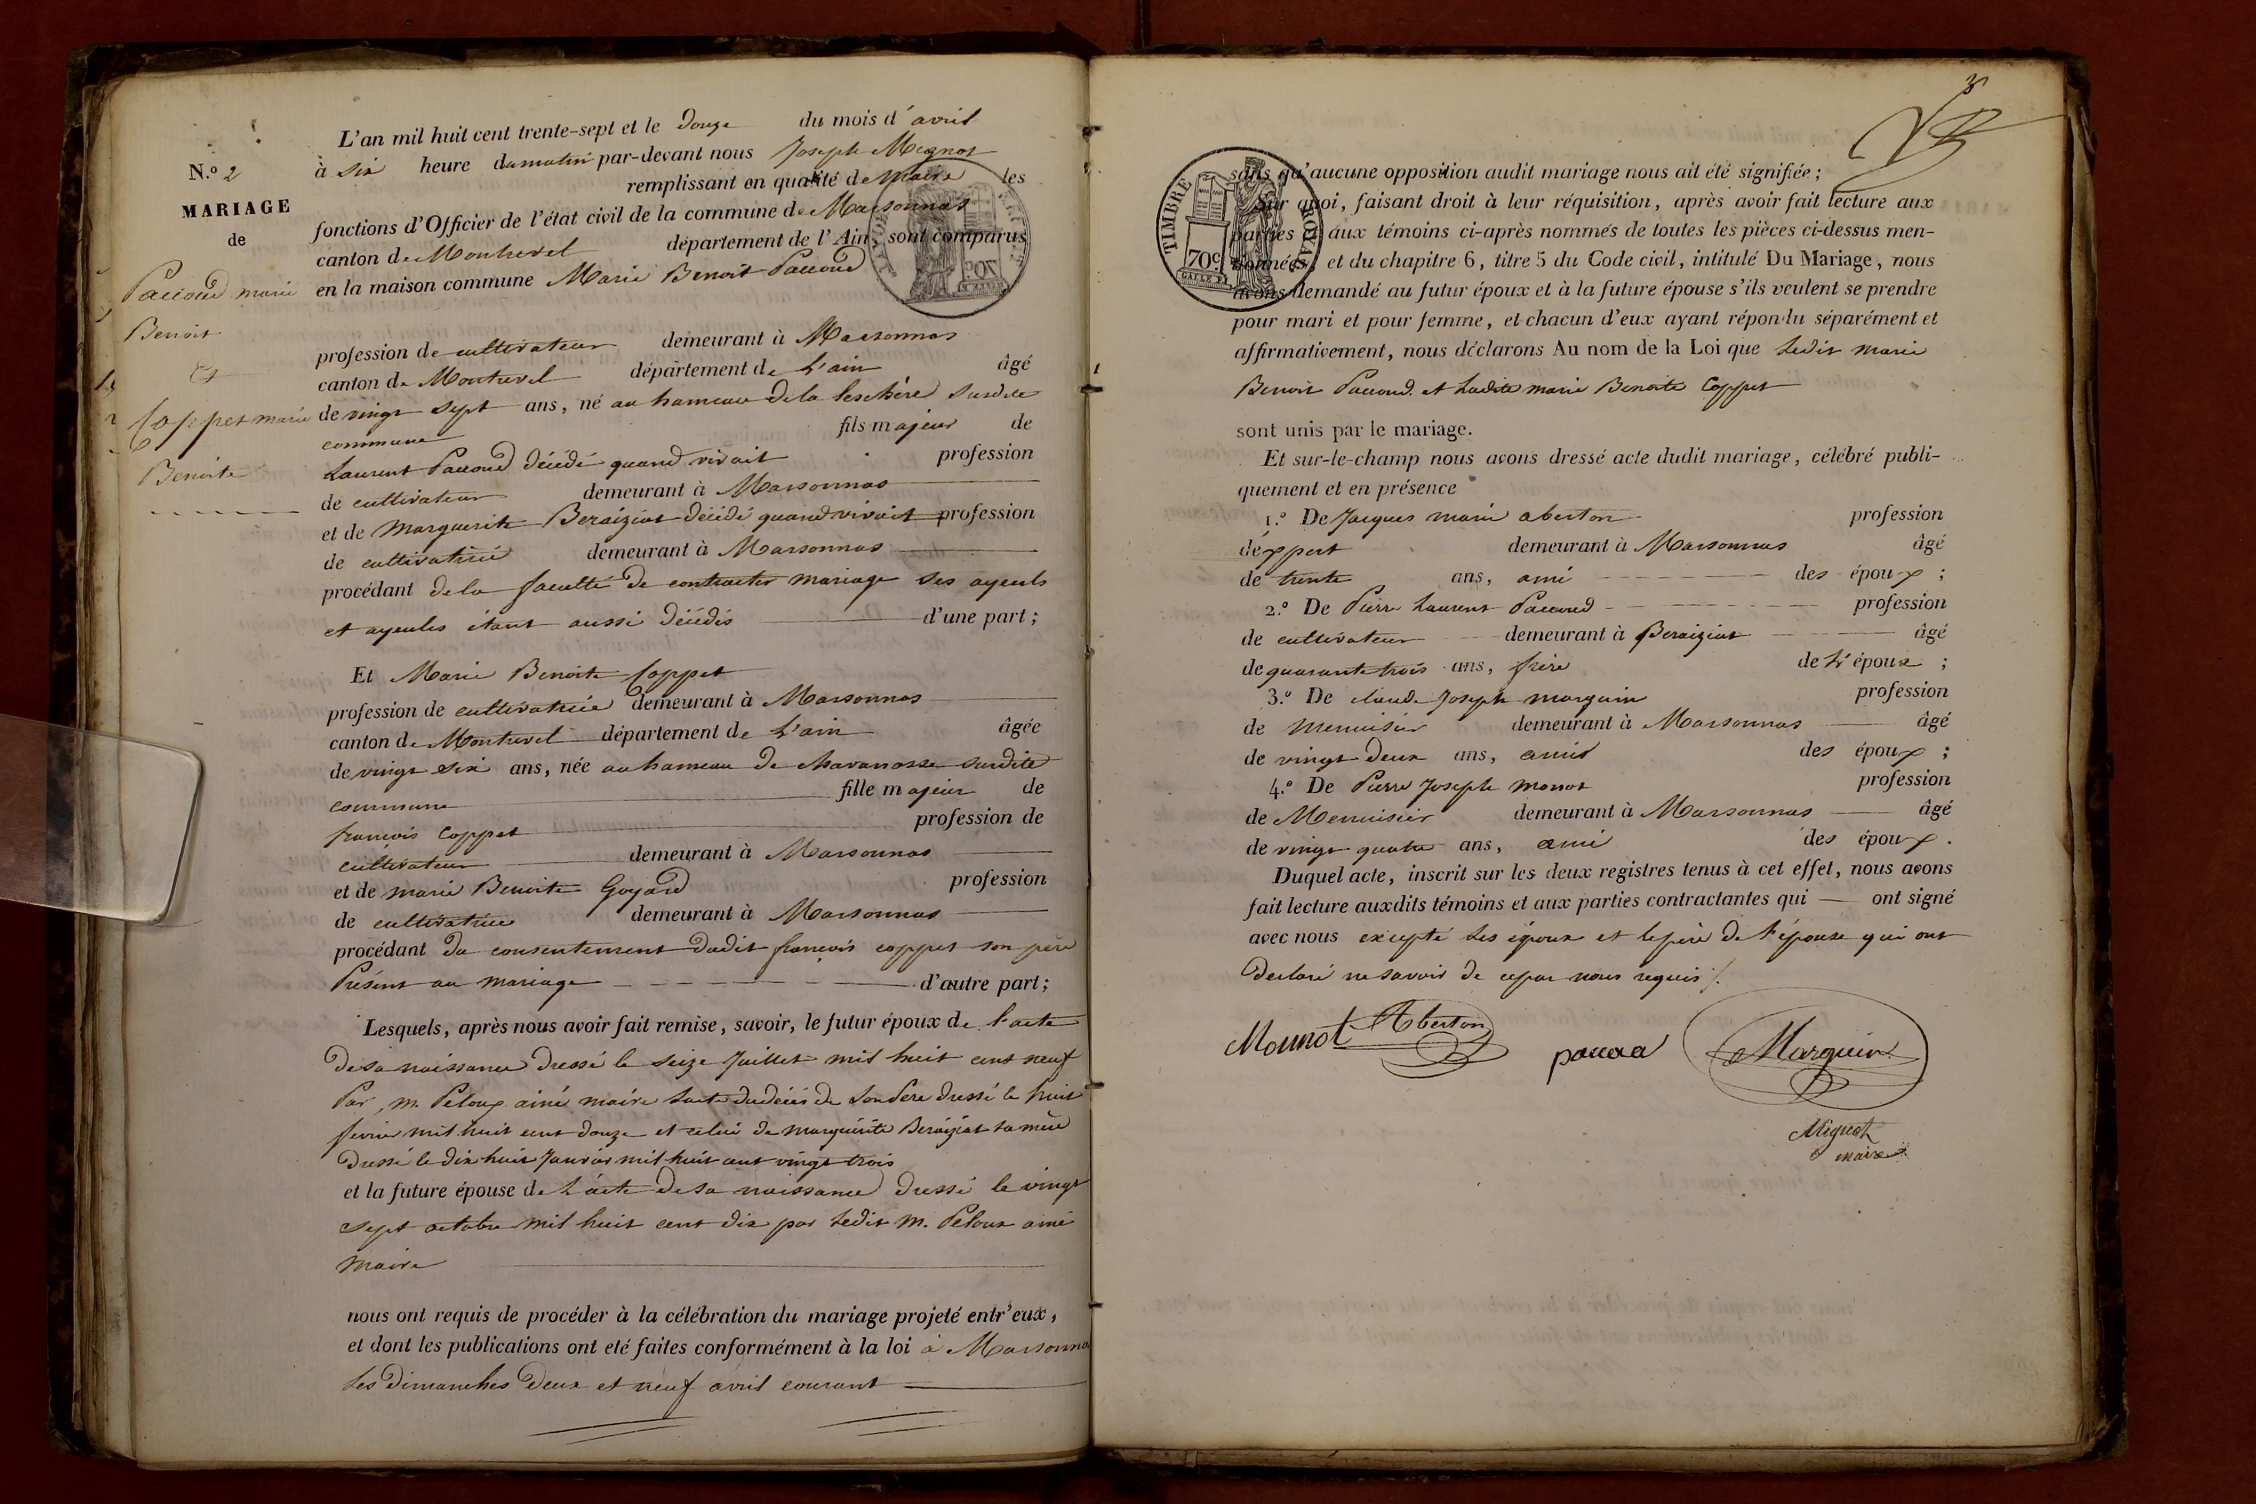 N.o 2
MARIAGE
de
Paccoud marie
Benoit
et
Coppet marie
Benoite
L'an mil huit cent trente-sept et le douze du mois d'avril
à six heure du matin par-devant nous Joseph Mignot
remplissant en qualité de Maire les
fonctions d'Officier de l'état civil de la commune de Marsonnas
canton de Montrevel département de l'Ain, sont comparus
en la maison commune Marie Benoit Paccoud
profession de cultivateur demeurant à Marsonnas
canton de Montrevel département de L'ain âgé
de vingt sept ans, né au hameau de la leschère susdite
commune fils majeur de
Laurent Paccoud décédé quand vivait profession
de cultivateur demeurant à Marsonnas
et de Marguerite Beraiziat décédé quand vivait profession
de cultivatrice demeurant à Marsonnas
procédant de la faculté de contracter mariage ses ayeuls
et ayeules étant aussi décédés d'une part ;
Et Marie Benoite Coppet
profession de cultivatrice demeurant à Marsonnas
canton de Montrevel département de L'ain âgée
de vingt six ans, née au hameau de chavanosse susdite
commune fille majeur de
françois Coppet profession de
cultivateur demeurant à Marsonnas
et de marie Benoite Goyard profession
de cultivatrice demeurant à Marsonnas
procédant du consentement dudit françois coppet son père
Présent au mariage d'autre part ;
Lesquels, après nous avoir fait remise, savoir, le futur époux de l'acte
de sa naissance dressé le seize Juillet mil huit cent neuf
Par m. Peloux ainé maire l'acte du décès de son Père dressé le huit
fevrier mil huit cent douze et celui de marguérite Beraiziat sa mère
dressé le dix huit Janvier mil huit cent vingt trois
et la future épouse de L'acte de sa naissance dressé le vingt
sept octobre mil huit cent dix par ledit M. Peloux ainé
maire
nous ont requis de procéder à la célébration du mariage projeté entr'eux,
et dont les publications ont été faites conformément à la loi à Marsonnas
les dimanches deux et neuf avril courant
3
TIMBRE ROYAL
70c
sans qu'aucune opposition audit mariage nous ait été signifiée ;
Sur quoi, faisant droit à leur réquisition, après avoir fait lecture aux
parties et aux témoins ci-après nommés de toutes les pièces ci-dessus men-
tionnées, et du chapitre 6, titre 5 du Code civil, intitulé Du Mariage, nous
avons demandé au futur époux et à la future épouse s'ils veulent se prendre
pour mari et pour femme, et chacun d'eux ayant répondu séparément et
affirmativement, nous déclarons Au nom de la Loi que ledit marie
Benoit Paccoud et Ladite marie Benoite Coppet
sont unis par le mariage.
Et sur-le-champ nous avons dressé acte dudit mariage, célébré publi-
quement et en présence
1.o De Jacques marie aberton profession
d'éxpert demeurant à Marsonnas âgé
de trente ans, ami des époux ;
2.o De Pierre Laurent Paccoud profession
de cultivateur demeurant à Beraiziat âgé
de quarante trois ans, frère de L'époux ;
3.o De claude Joseph marguin profession
de menuisier demeurant à Marsonnas âgé
de vingt deux ans, amis des époux ;
4.o De Pierre Joseph monnot profession
de Menuisier demeurant à Marsonnas âgé
de vingt quatre ans, ami des époux.
Duquel acte, inscrit sur les deux registres tenus à cet effet, nous avons
fait lecture auxdits témoins et aux parties contractantes qui ont signé
avec nous excepté les époux et le père de l'épouse qui ont
déclaré ne savoir de ce par nous requis ./.
Mounot Aberton paccod Marguin
Mignot
maire